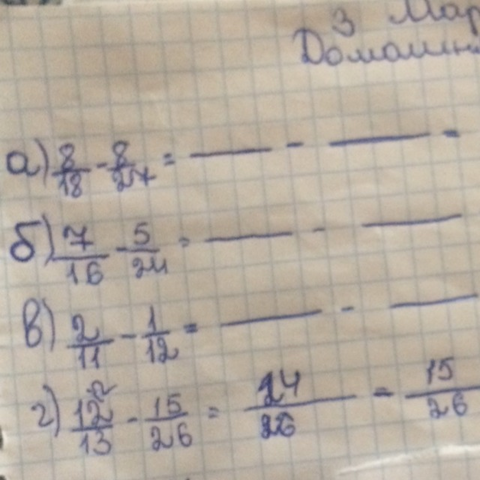 3 Мар
Домашн
а) 8/18 - 8/27 = — - — =
б) 7/16 - 5/24 = — - —
в) 2/11 - 1/12 = — - —
г) 12/13 - 15/26 = 24/26 - 15/26